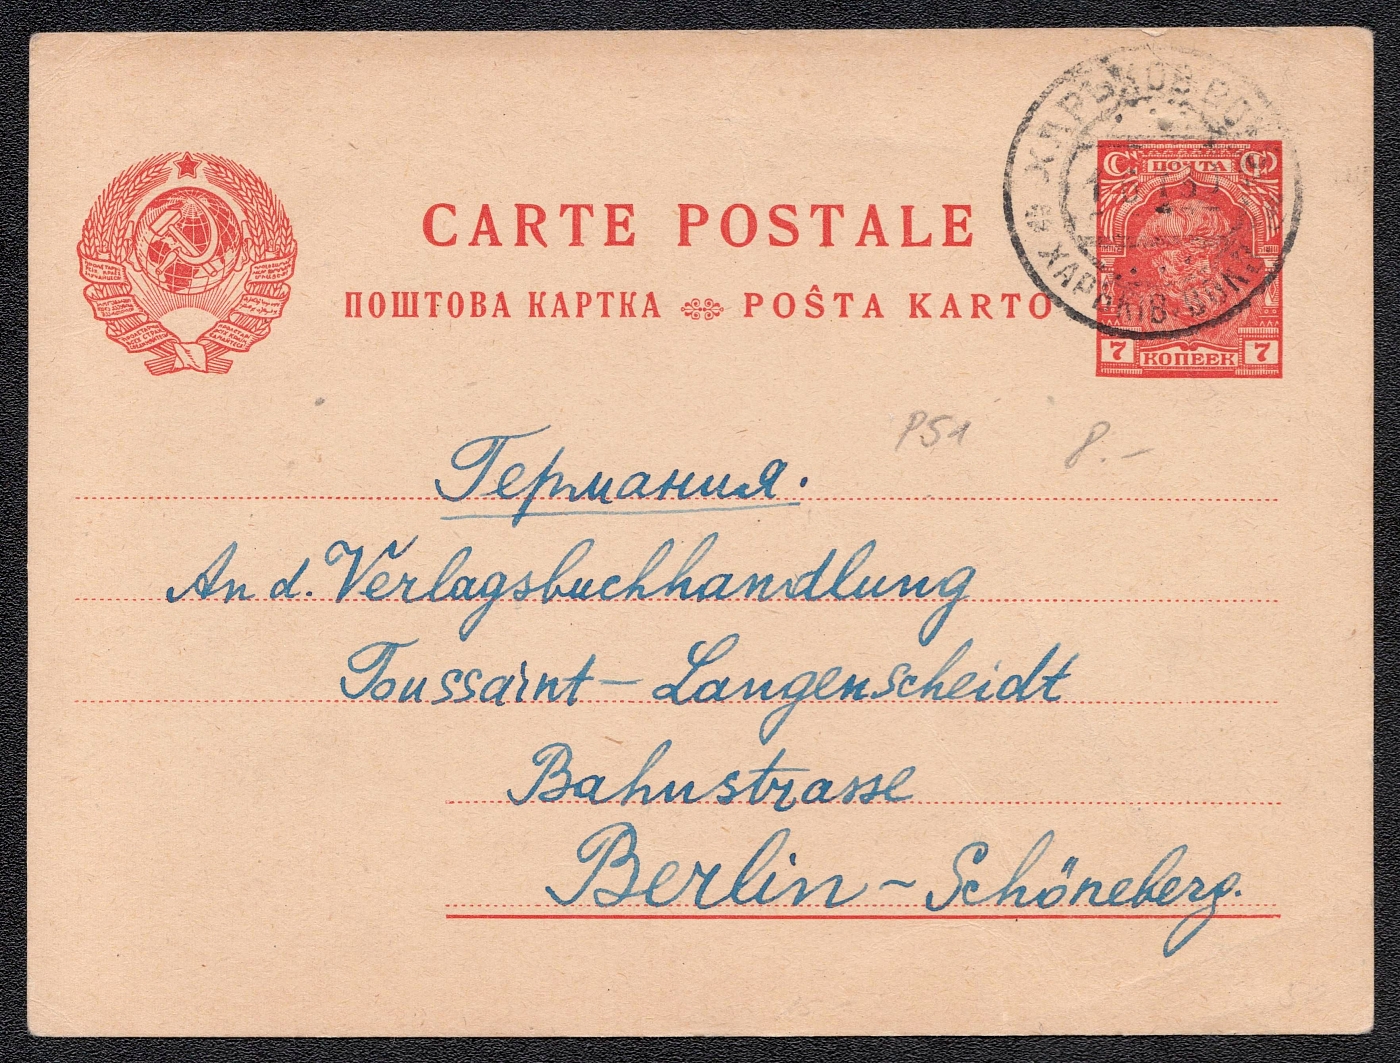 CARTE POSTALE
ПОШТОВА КАРТКА POŜTA KARTO
ПОЧТА
7 КОПЕЕК 7
ХАРЬКОВ
P51 8.-
Германия.
An d. Verlagsbuchhandlung
Toussaint - Langenscheidt
Bahnstrasse
Berlin - Schöneberg.